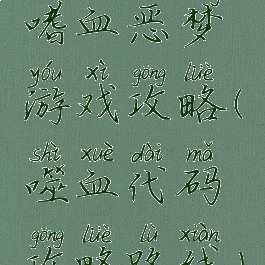 嗜血恶梦
yóu xì gōng lüè
游戏攻略(
shì xuè dài mǎ
噬血代码
gōng lüè lù xiàn
攻略路线)